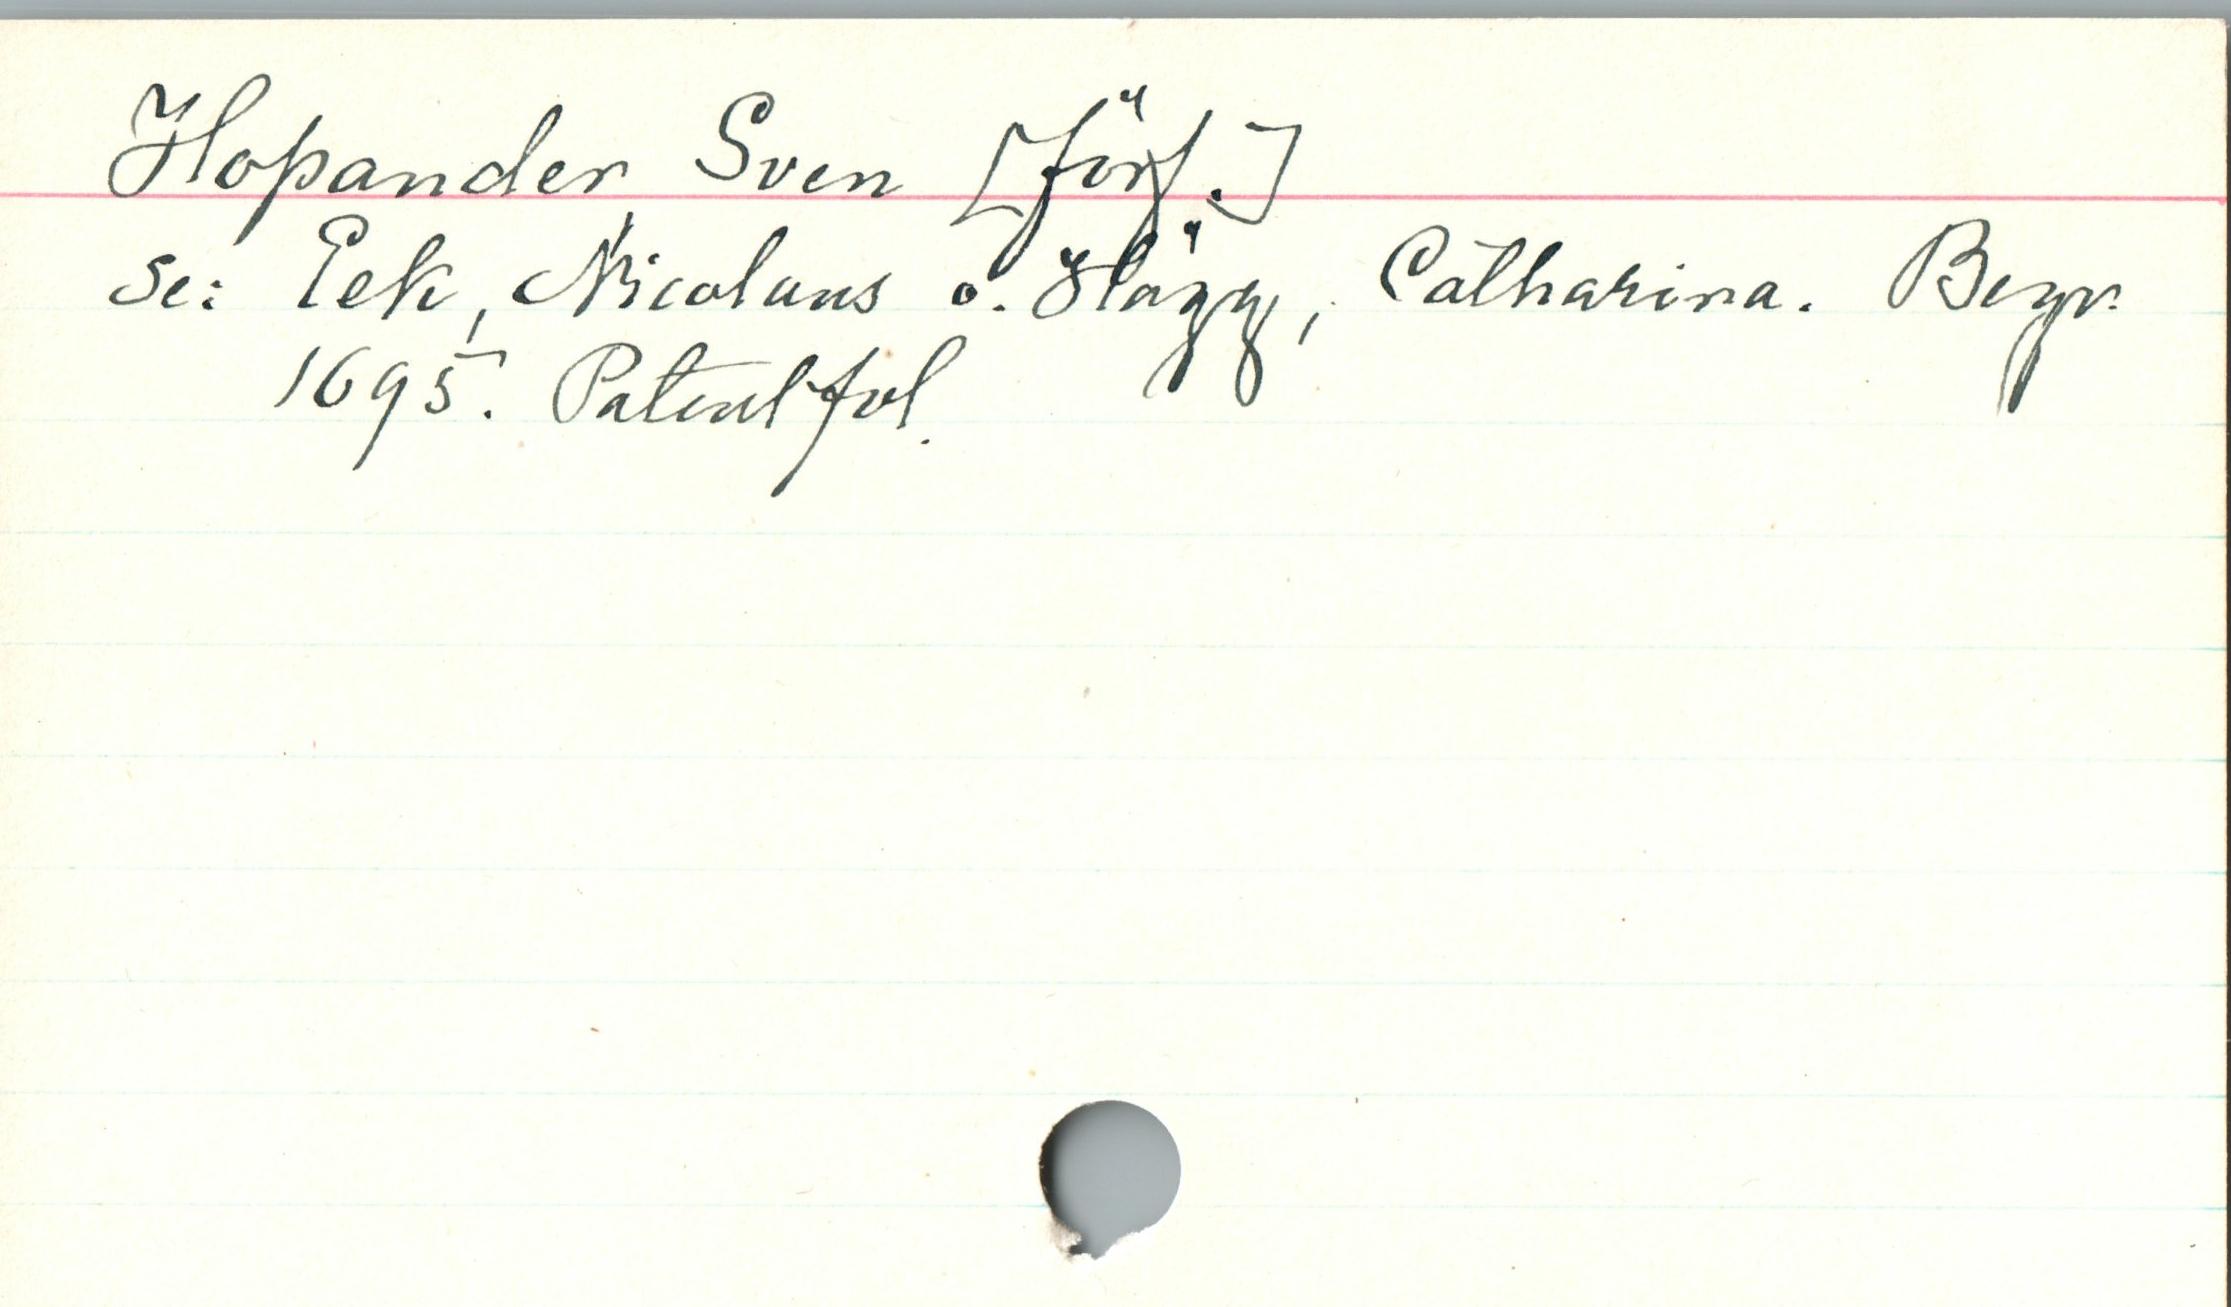 Hopander Sven [förf.]
se: Eek, Nicolaus o. Hägg, Catharina. Begr.
1695. Patentfol.